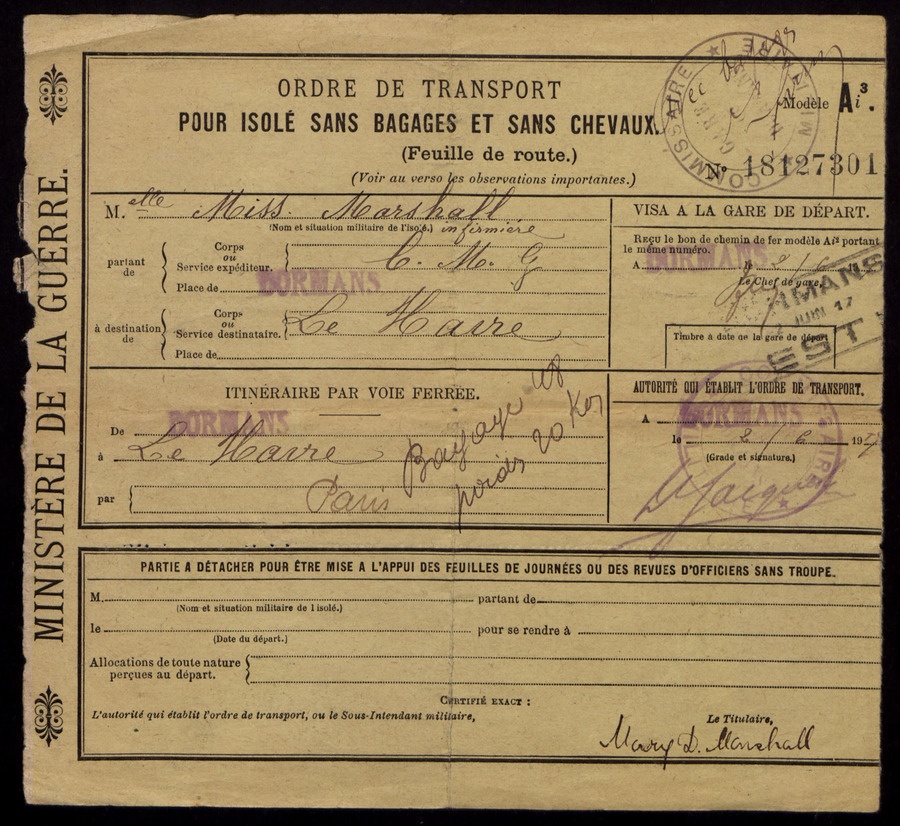 MINISTÈRE DE LA GUERRE.
ORDRE DE TRANSPORT
POUR ISOLÉ SANS BAGAGES ET SANS CHEVAUX.
(Feuille de route.)
(Voir au verso les observations importantes.)
COMMISSAIRE MILITAIRE
GARE
Modèle Ai³.
N° 18127301
M.elle Miss. Marshall
(Nom et situation militaire de l'isolé.) infirmière
partant de
Corps ou Service expéditeur. C. M. G
Place de DORMANS
à destination de
Corps ou Service destinataire. Le Havre
Place de
VISA A LA GARE DE DÉPART.
REÇU le bon de chemin de fer modèle Ai³ portant
le même numéro.
A DORMANS le 2/6
Le Chef de gare,
DORMANS
2 JUIN 17
EST
Timbre à date de la gare de départ
ITINÉRAIRE PAR VOIE FERRÉE.
De DORMANS
à Le Havre
par Paris
Bagage 48
poids 20 Kos
AUTORITÉ QUI ÉTABLIT L'ORDRE DE TRANSPORT.
A DORMANS
le 2/6 1917
(Grade et signature.)
PARTIE A DÉTACHER POUR ÊTRE MISE A L'APPUI DES FEUILLES DE JOURNÉES OU DES REVUES D'OFFICIERS SANS TROUPE.
M. partant de
(Nom et situation militaire de l isolé.)
le pour se rendre à
(Date du départ.)
Allocations de toute nature
perçues au départ.
CERTIFIÉ EXACT :
L'autorité qui établit l'ordre de transport, ou le Sous-Intendant militaire,
Le Titulaire,
Mary D. Marshall